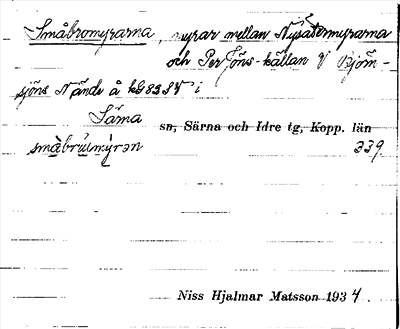 Småbromyrarna, myrar mellan Nysätermyrarna
och Per Jöns-källan V Björn-
sjöns N ände å kG838V i
Särna sn, Särna och Idre tg, Kopp. län
småbrumyrən 339.
Niss Hjalmar Matsson 1934.